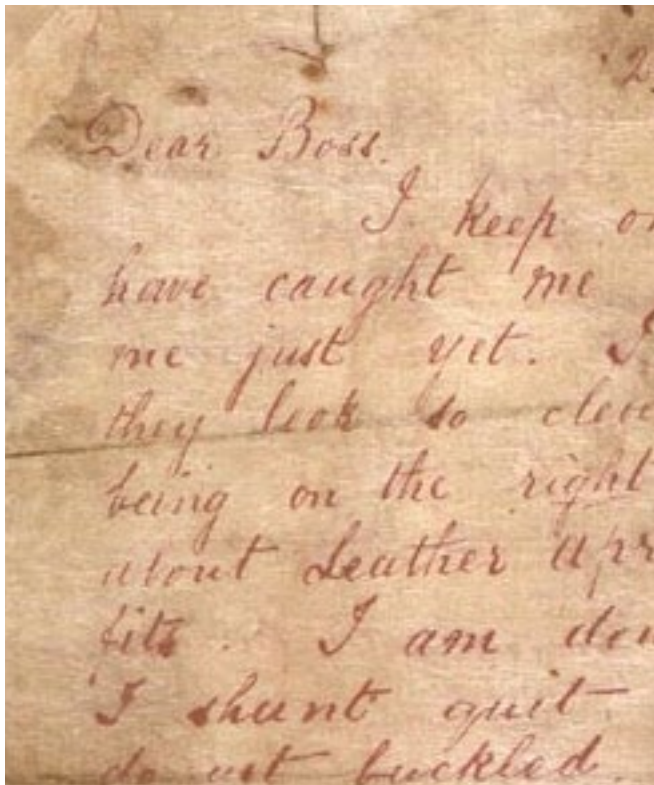 2
Dear Boss.
I keep on
have caught me
me just yet. I
they look so clev
being on the right
about Leather apr
fits. I am dow
I shunt quit
do get buckled.